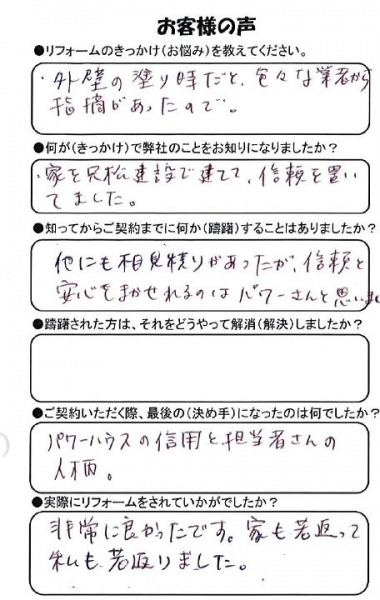 お客様の声
●リフォームのきっかけ(お悩み)を教えてください。
・外壁の塗り時だと、色々な業者から
指摘があったので。
●何が(きっかけ)で弊社のことをお知りになりましたか?
・家を兄松建設で建てて、信頼を置い
てました。
●知ってからご契約までに何か(躊躇)することはありましたか?
他にも相見積りがあったが、信頼と
安心をまかせれるのはパワーさんと思いまし
●躊躇された方は、それをどうやって解消(解決)しましたか?
●ご契約いただく際、最後の(決め手)になったのは何でしたか?
パワーハウスの信用と担当者さんの
人柄。
●実際にリフォームをされていかがでしたか?
非常に良かったです。家も若返って
私も若返りました。